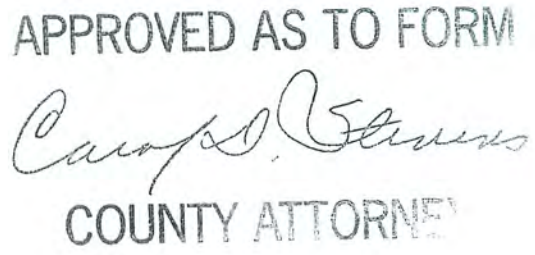 APPROVED AS TO FORM
Carol D. Stevens
COUNTY ATTORNEY